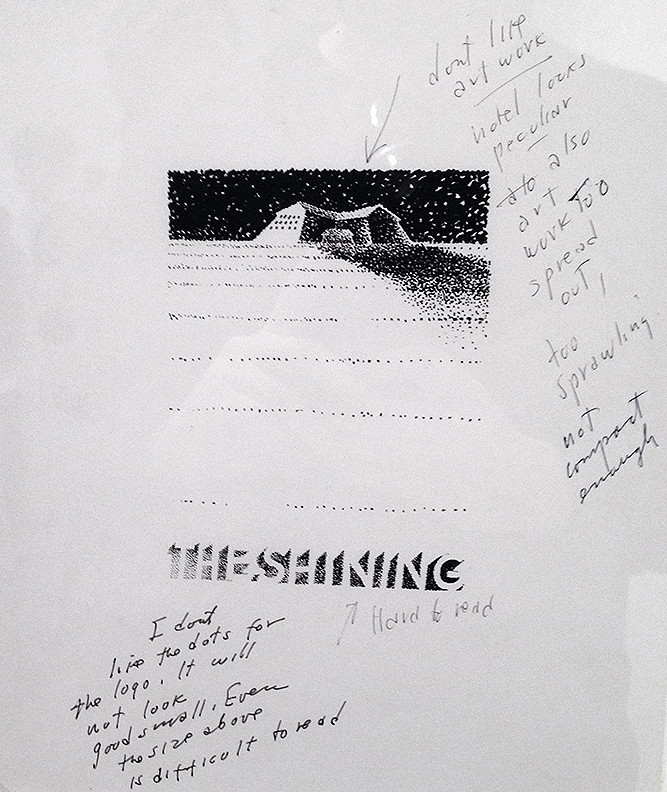 dont like
art work
hotel looks
peculiar
also
art
work too
spread
out,
too
sprawling
not
compact
enough
THE SHINING
Hard to read
I dont
like the dots for
the logo. It will
not look
good small. Even
the size above
is difficult to read